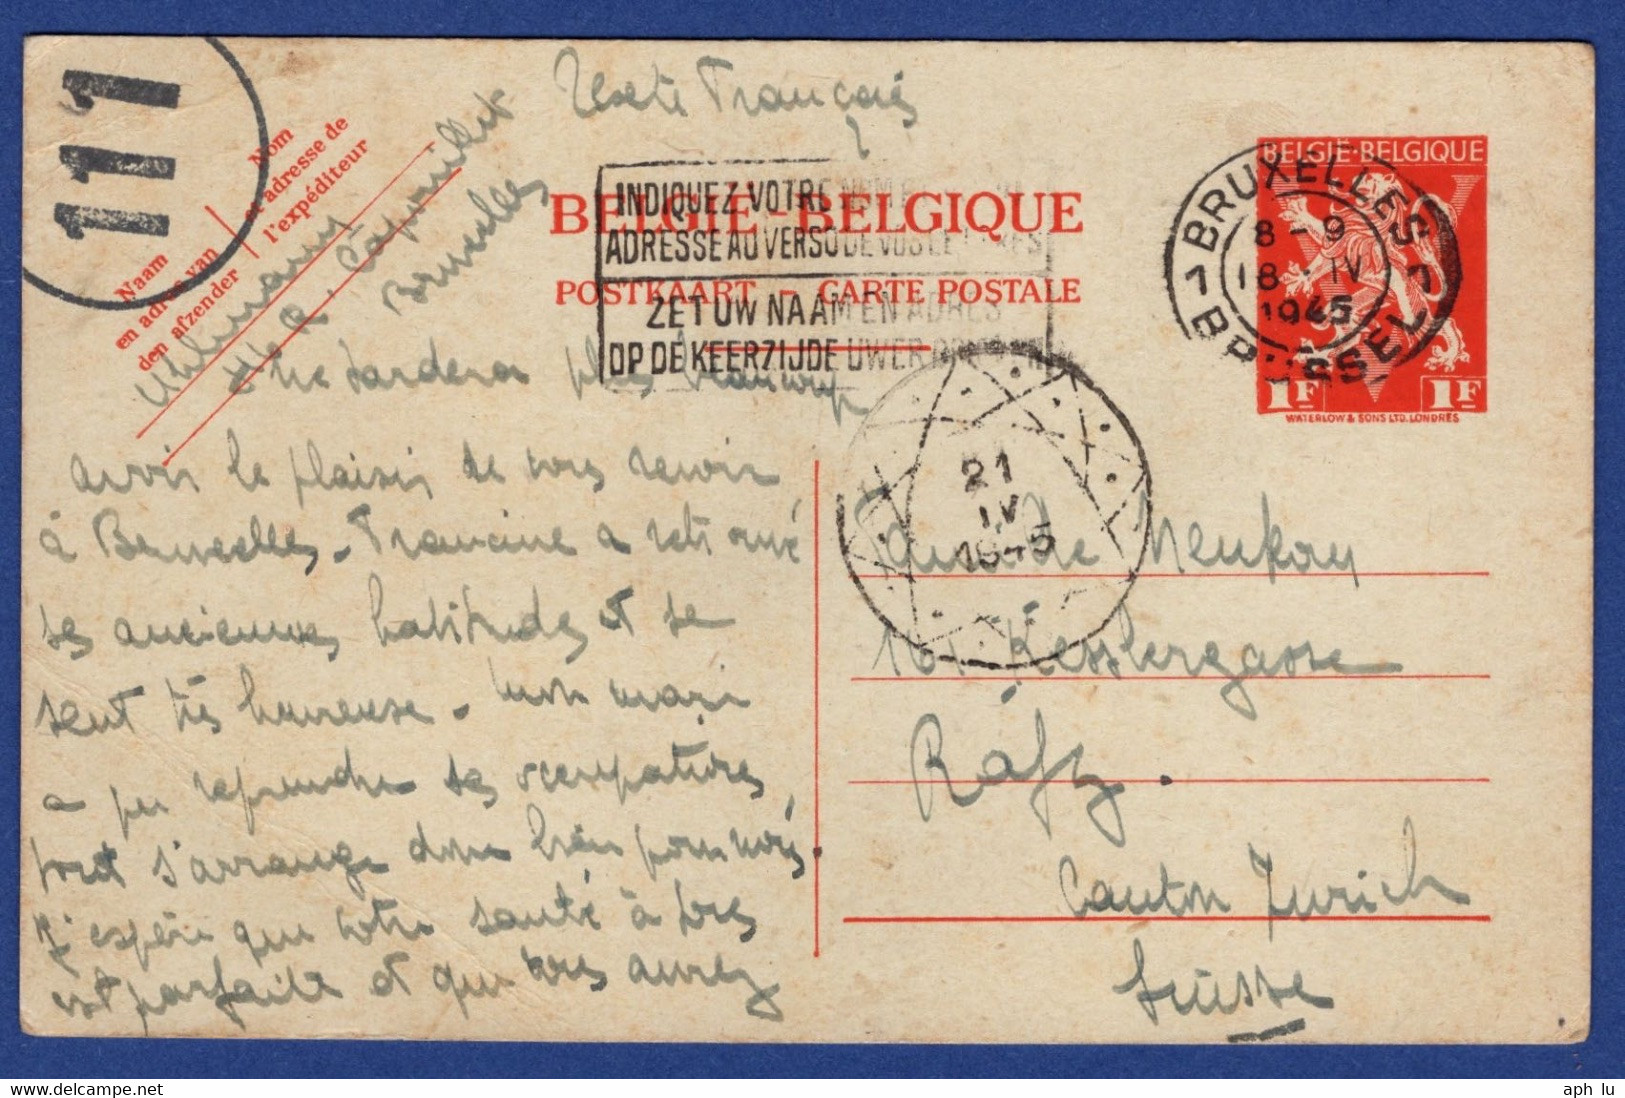 111
Texte Français
Nom
et adresse de
l'expéditeur
Naam
en adres van
den afzender
Bruxelles
BELGIË - BELGIQUE
POSTKAART - CARTE POSTALE
INDIQUEZ VOTRE NOM
ADRESSE AU VERSO DE VOS LETTRES
ZET UW NAAM EN ADRES
OP DE KEERZIJDE UWER
BELGIE-BELGIQUE
BRUXELLES
8-9
18 IV
1945
BRUSSEL
1F 1F
WATERLOW & SONS LTD. LONDRES
21
IV
1945
ne tardera plus beaucoup
avoir le plaisir de vous revoir
à Bruxelles. Francine a retrouvé
ses anciennes habitudes et se
sent très heureuse. Mon mari
a pu reprendre ses occupations,
tout s'arrange donc bien pour nous.
J'espère que votre santé à tous
est parfaite et que vous aurez
de
161 Kesslergasse
Räfz.
Canton Zurich
Suisse
aph lu